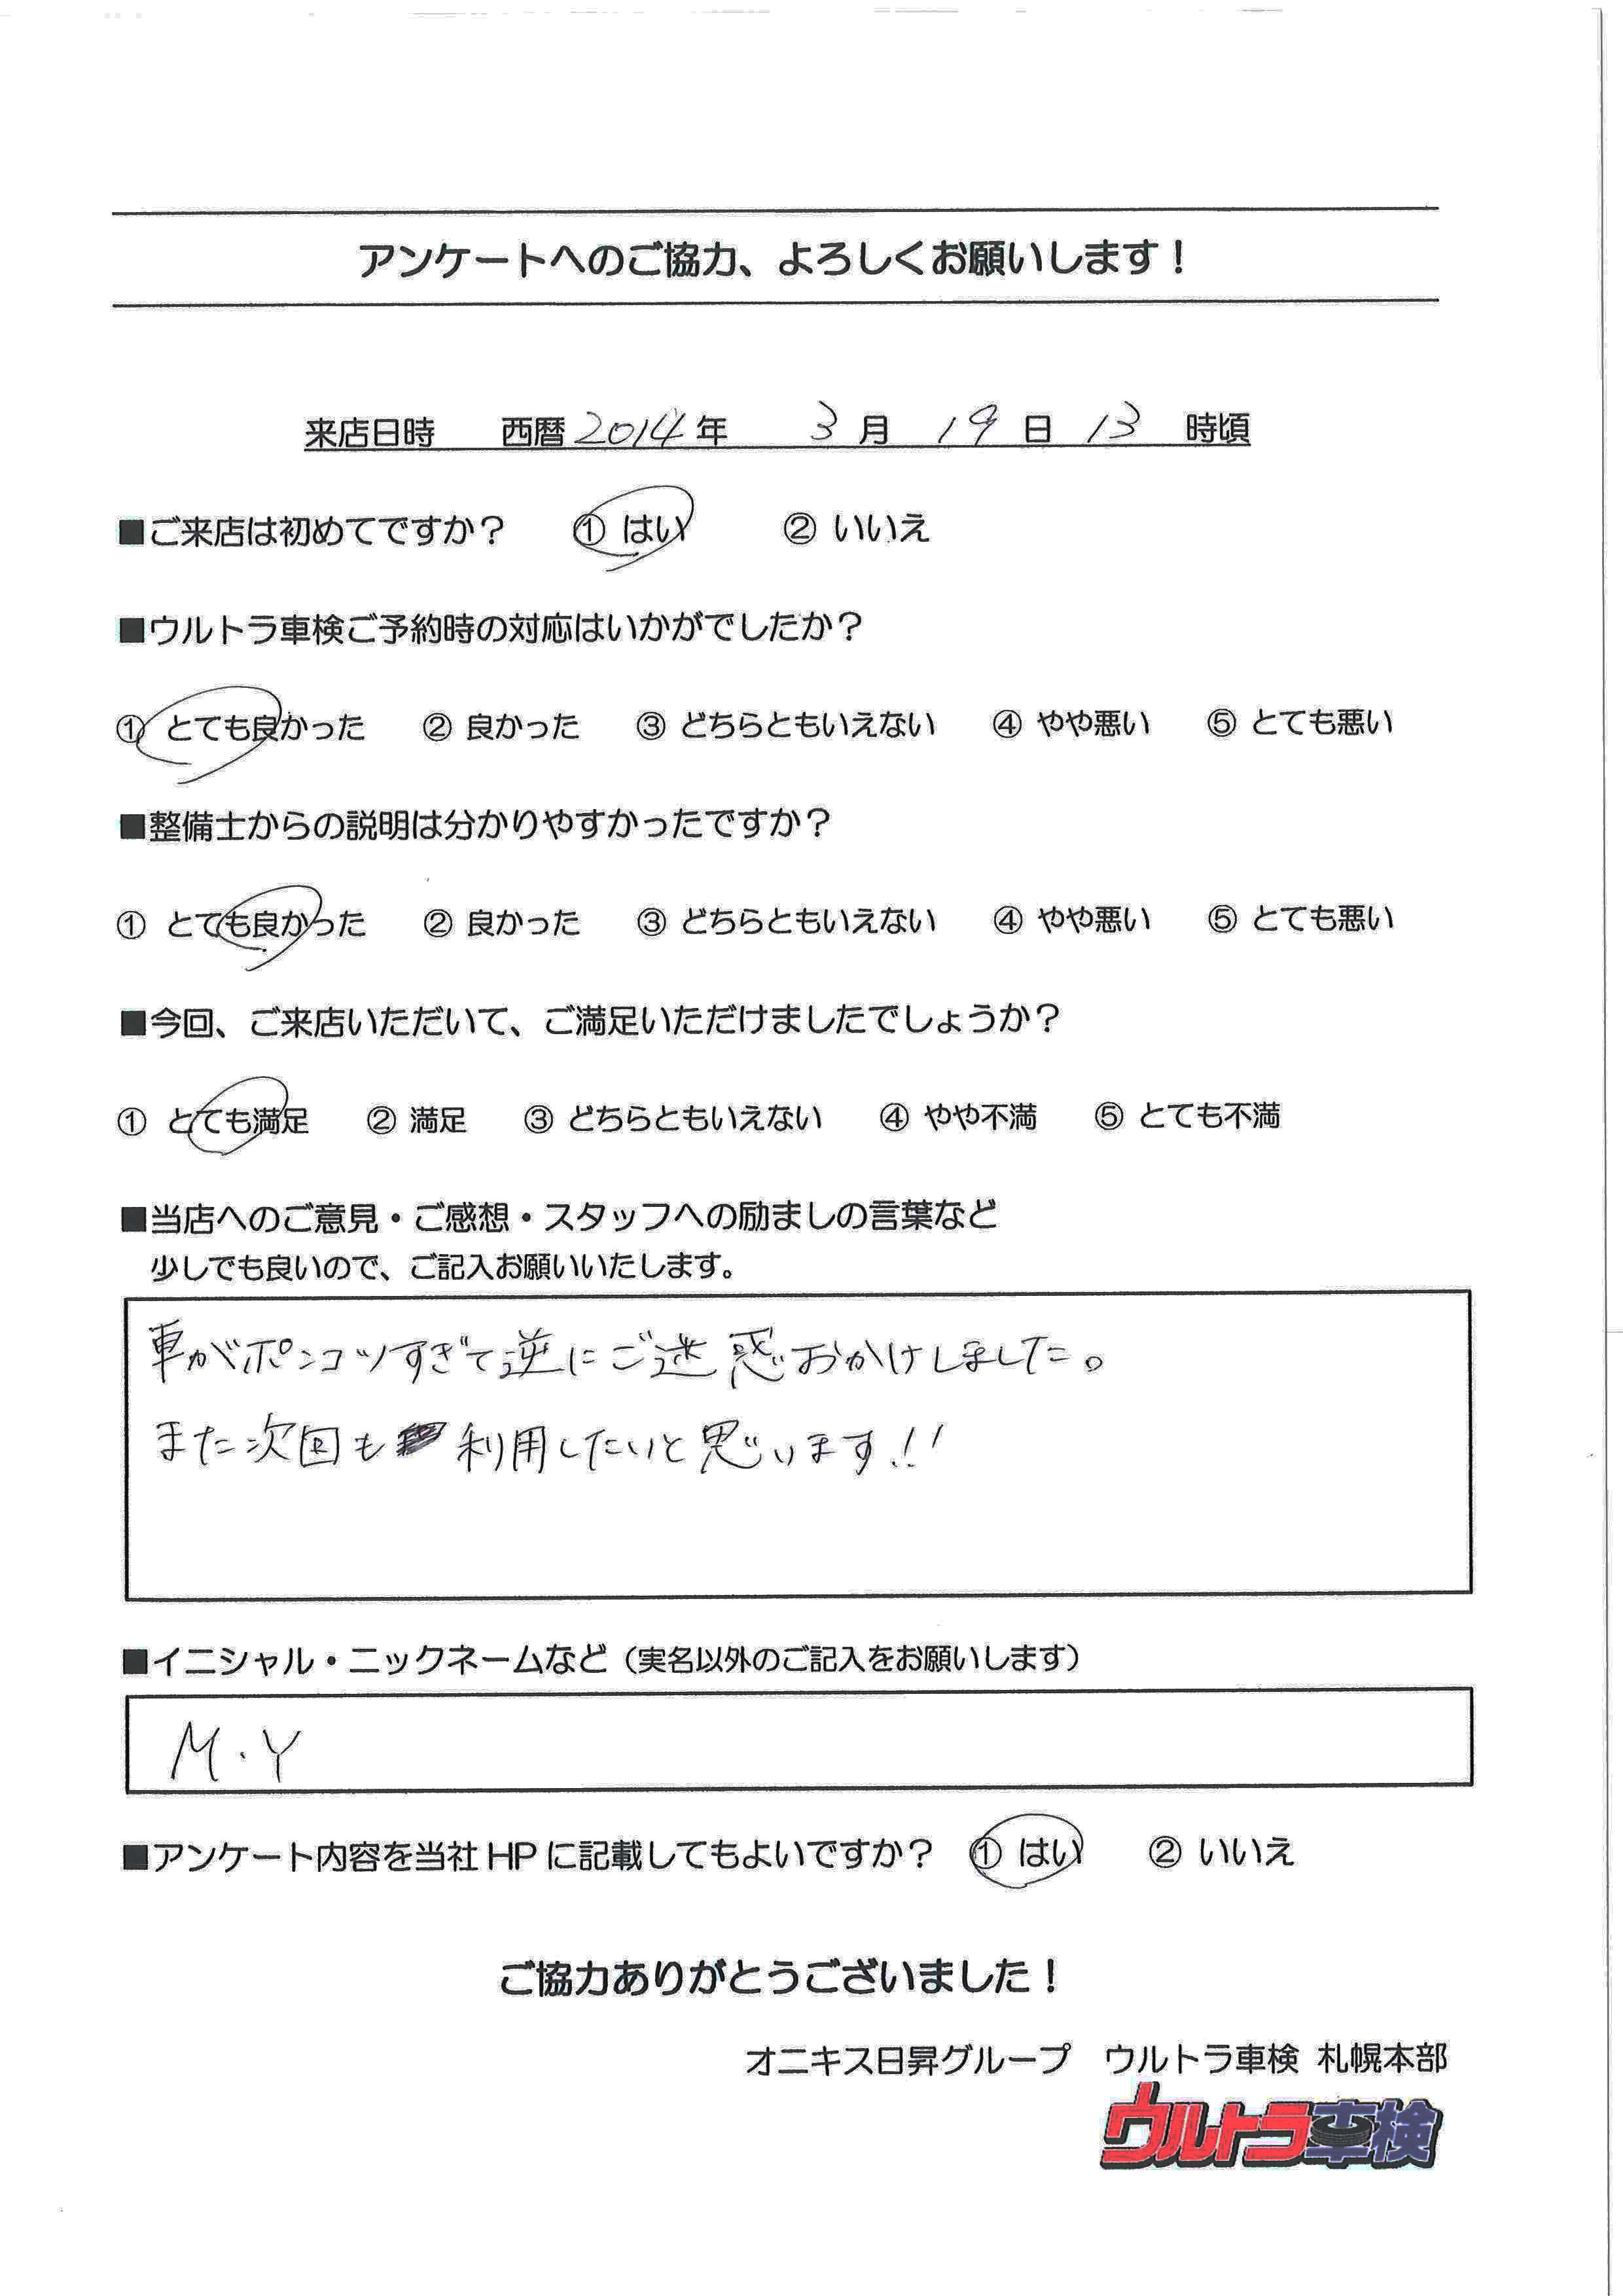 アンケートへのご協力、よろしくお願いします！
来店日時 西暦2014年 3月 19日 13 時頃
■ご来店は初めてですか？ ① はい ② いいえ
■ウルトラ車検ご予約時の対応はいかがでしたか？
① とても良かった ② 良かった ③ どちらともいえない ④ やや悪い ⑤ とても悪い
■整備士からの説明は分かりやすかったですか？
① とても良かった ② 良かった ③ どちらともいえない ④ やや悪い ⑤ とても悪い
■今回、ご来店いただいて、ご満足いただけましたでしょうか？
① とても満足 ② 満足 ③ どちらともいえない ④ やや不満 ⑤ とても不満
■当店へのご意見・ご感想・スタッフへの励ましの言葉など
少しでも良いので、ご記入お願いいたします。
車がポンコツすぎて逆にご迷惑おかけしました。
また次回も利用したいと思います!!
■イニシャル・ニックネームなど（実名以外のご記入をお願いします）
M.Y
■アンケート内容を当社 HP に記載してもよいですか？ ① はい ② いいえ
ご協力ありがとうございました！
オニキス日昇グループ ウルトラ車検 札幌本部
ウルトラ車検